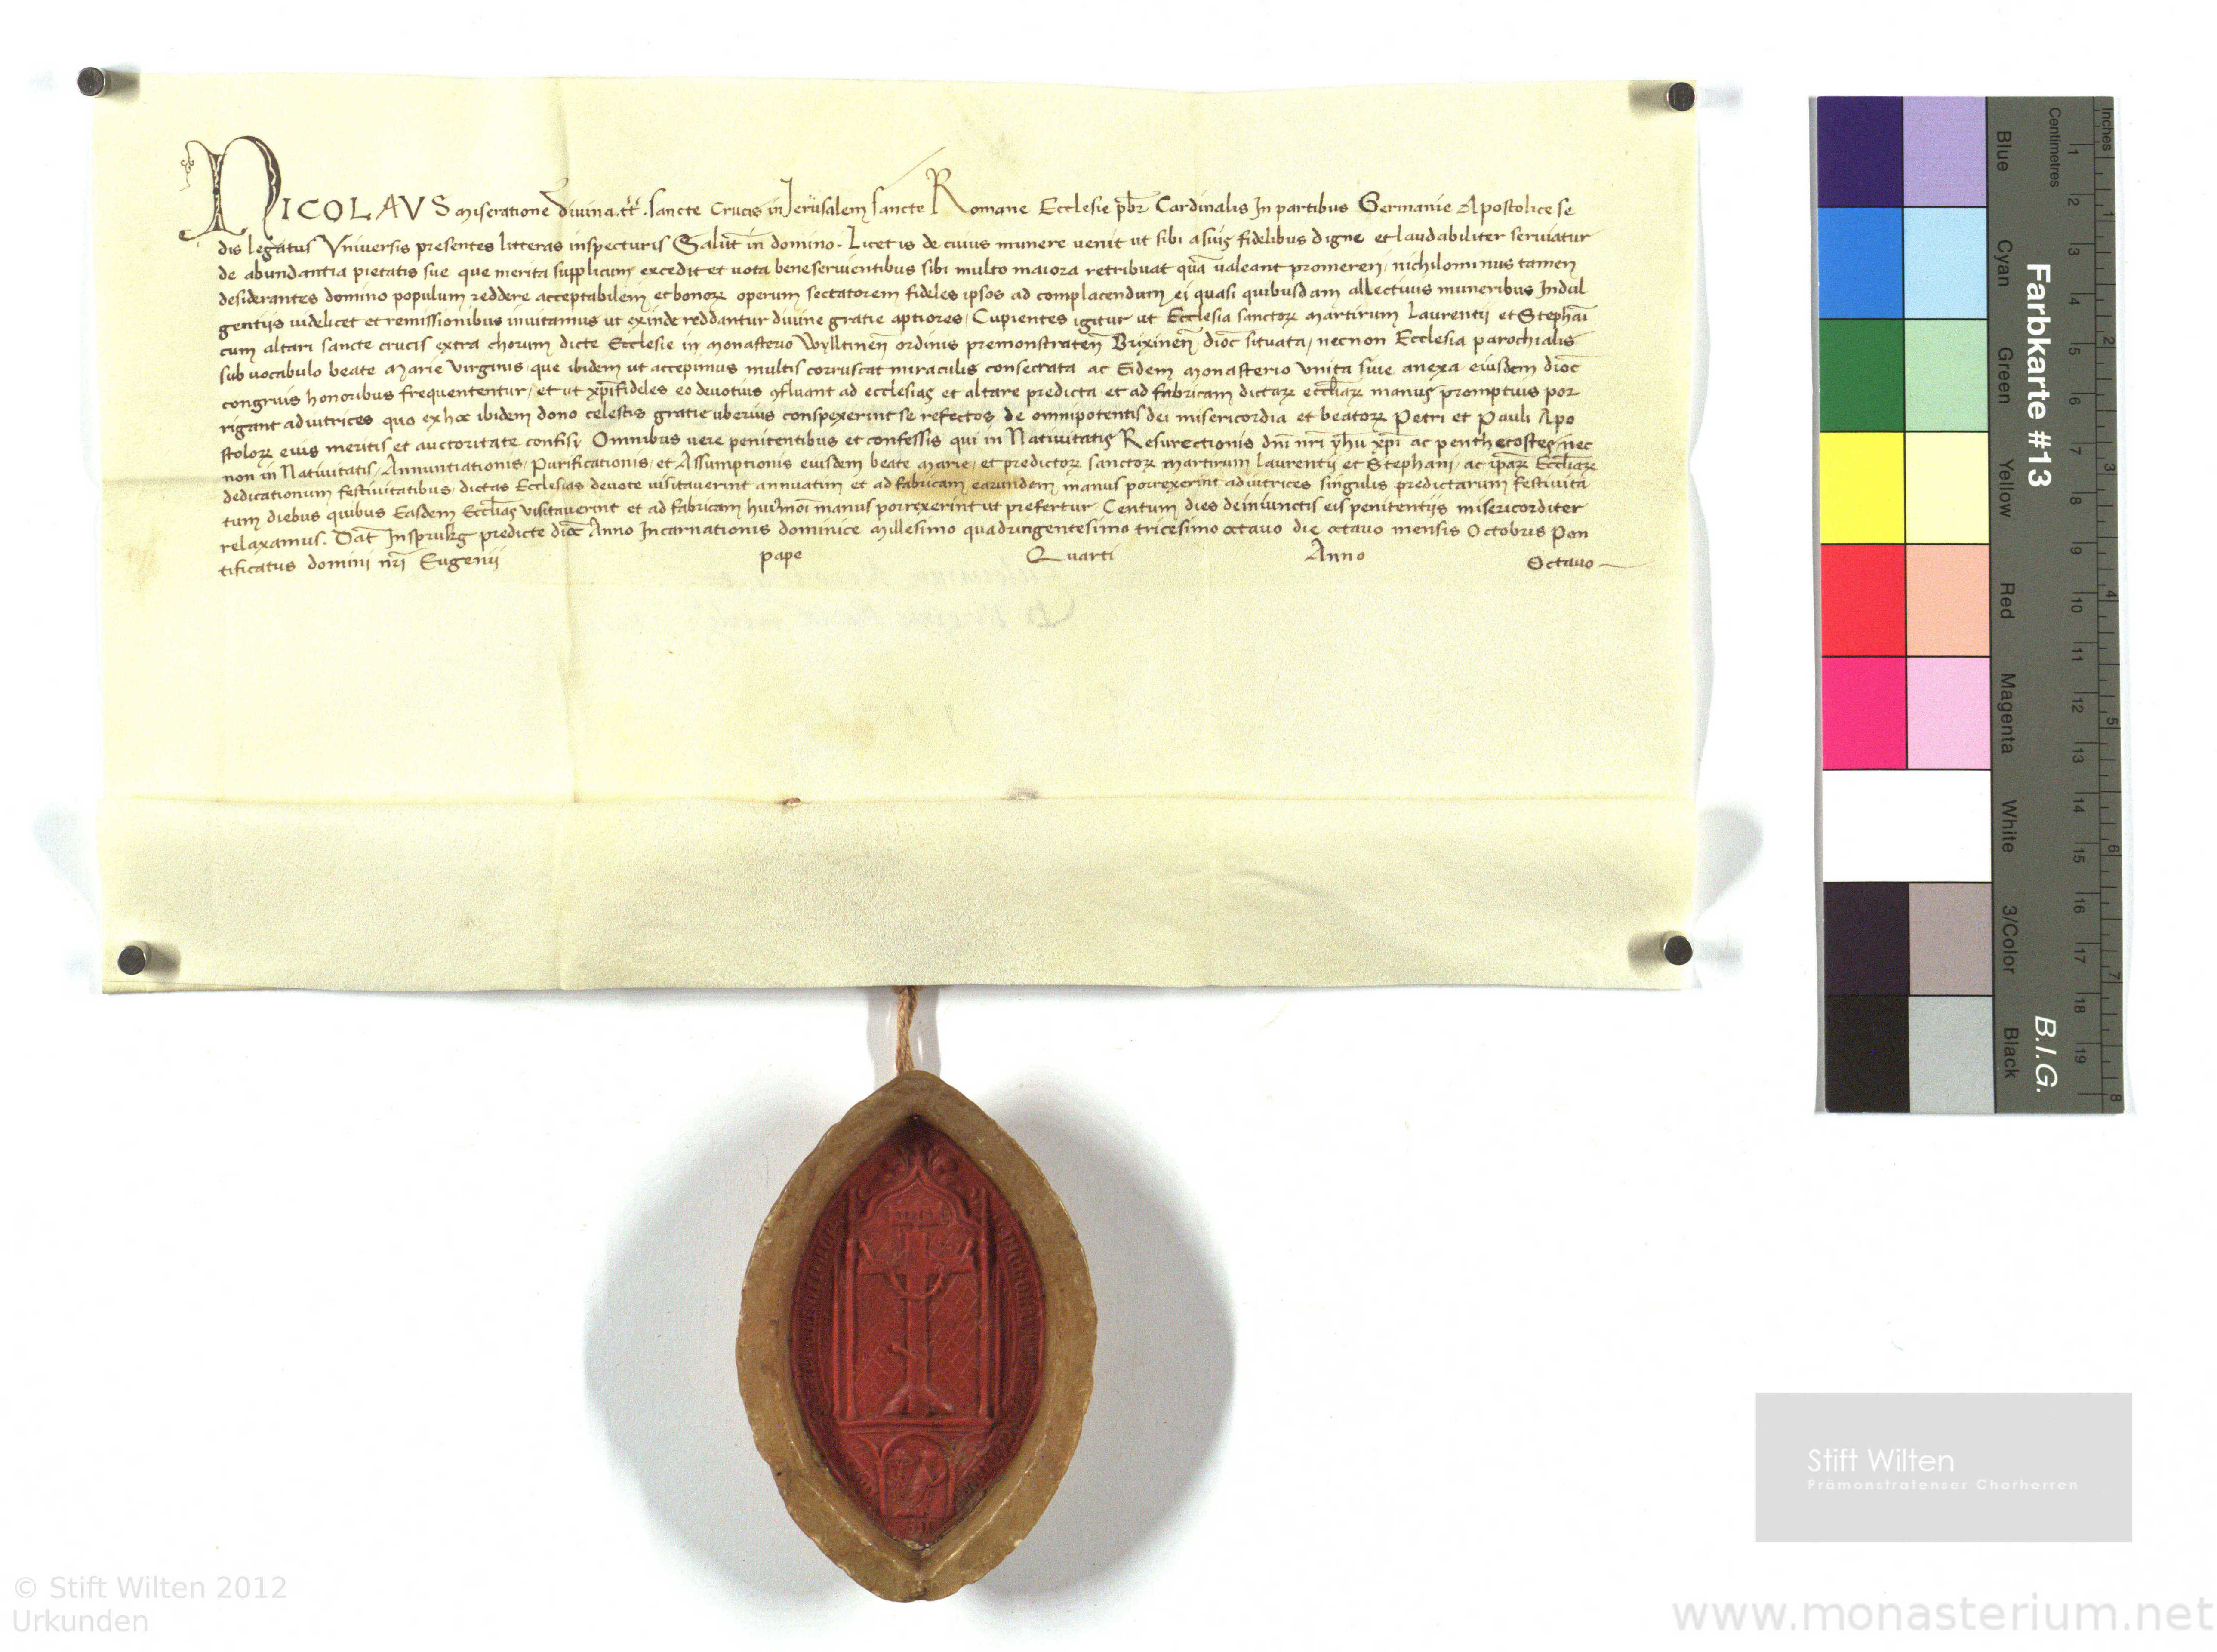 NICOLAVS miseratione divina .tt̃. sancte Crucis in Jerusalem sancte Romane Ecclesie pb̃r Cardinalis In partibus Germanie Apostolice se
dis legatus Vniversis presentes litteras inspecturis Salut̃ in domino. Licet is de cuius munere uenit ut sibi a suis fidelibus digne et laudabiliter seruiatur
de abundantia pietatis sue que merita supplicum excedit et uota bene seruientibus sibi multo maiora retribuat quã ualeant promereri, nichilominus tamen
desiderantes domino populum reddere acceptabilem et bonoꝝ operum sectatorem fideles ipsos ad complacendum ei quasi quibusdam allectiuis muneribus Indul
gentijs uidelicet et remissionibus inuitamus ut exinde reddantur diuine gratie aptiores, Cupientes igitur ut Ecclesia sanctoꝝ martirum Laurentij et Stephãi
cum altari sancte crucis extra chorum dicte Ecclesie in monasterio Wylltineñ ordinis premonstrateñ Brixineñ dioc̃ situata, necnon Ecclesia parochialis
sub uocabulo beate Marie Virginis, que ibidem ut accepimus multis corruscat miraculis consecrata ac Eidem monasterio vnita siue anexa eiusdem dioc̃
congruis honoribus frequententur, et ut xp̃ifideles eo deuotius ꝯfluant ad ecclesias et altare predicta et ad fabricam dictaꝝ eccl̃iaꝝ manus promptius por
rigant adiutrices quo ex hoc ibidem dono celestis gratie uberius conspexerint se refectos de omnipotentis dei misericordia et beatoꝝ Petri et Pauli Apo
stoloꝝ eius meritis et auctoritate confisi Omnibus uere penitentibus et confessis qui in Natiuitatis Resurectionis dñi nr̃i yh̃u xp̃i ac penthecostes, nec
non in Natiuitatis, Annuntiationis, Purificationis, et Assumptionis eiusdem beate Marie, et predictoꝝ sanctoꝝ martirum Laurentij et Stephani, ac ip̃aꝝ Eccl̃iaꝝ
dedicationum festiuitatibus, dictas Ecclesias deuote uisitauerint annuatim et ad fabricam earundem manus porrexerint adiutrices singulis predictarum festiuita
tum diebus quibus Easdem Eccl̃ias uisitauerint et ad fabricam hui9mõi manus porrexerint ut prefertur Centum dies de iniunctis eis penitentijs misericorditer
relaxamus. Dat̃ Insprukg predicte dioc̃ Anno Incarnationis dominice Millesimo quadringentesimo tricesimo octauo die octauo mensis Octobris Pon
tificatus domini nr̃i Eugenij pape Quarti Anno Octauo
Inches 1 2 3 4 5 6 7 8
Centimetres 1 2 3 4 5 6 7 8 9 10 11 12 13 14 15 16 17 18 19
Farbkarte #13 B.I.G.
Blue Cyan Green Yellow Red Magenta White 3/Color Black
Stift Wilten
Prämonstratenser Chorherren
© Stift Wilten 2012
Urkunden
www.monasterium.net